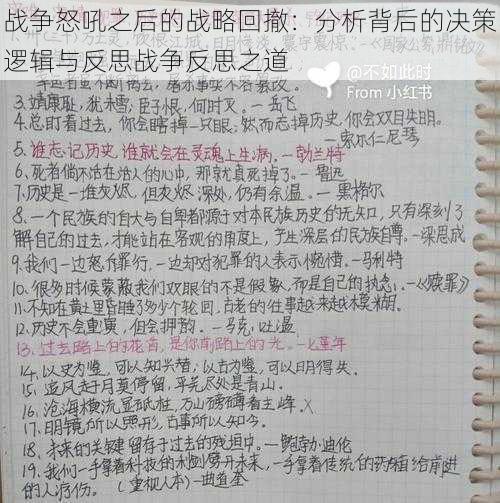 战争怒吼之后的战略回撤：分析背后的决策
逻辑与反思战争反思之道
@不如此时
From 小红书
3.靖康耻，犹未雪，臣子恨，何时灭。—岳飞
4.总盯着过去，你会瞎掉一只眼；然而忘掉历史，你会双目失明。
—索尔仁尼琴
5.谁忘记历史，谁就会在灵魂上生病。—勃兰特
6.死者倘不活在活人的心中，那就真死掉了。—鲁迅
7.历史是一堆灰烬，但灰烬深处，仍有余温。—黑格尔
8.一个民族的自大与自卑都源于对本民族历史的无知，只有深刻了
解自己的过去，才能站在客观的角度上，产生深层的民族自尊。—梁思成
9.我们一边怒斥罪行，一边却对犯罪的人表示惋惜。—马利特
10.很多时候蒙蔽我们双眼的不是假象，而是自己的执念。—《赎罪》
11.不知在黄土里昏睡了多少个轮回，古老的往事越来越模糊。
12.历史不会重演，但会押韵。—马克·吐温
13.过去路上的花有，是你前路上的光。—七堇年
14.以史为鉴，可以知兴替，以古为鉴，可以明得失。
15.追风赶月莫停留，平芜尽处是青山。
16.沧海横流显砥柱，万山磅礴看主峰。
17.明镜所以照形，古事所以知今。
18.未来的关键留存于过去的残垣中。—鲍勃迪伦
19.我们一手拿着科技的利剑劈开未来，一手拿着传统的药箱给前进
的人疗伤。（重视人本）—曲道奎